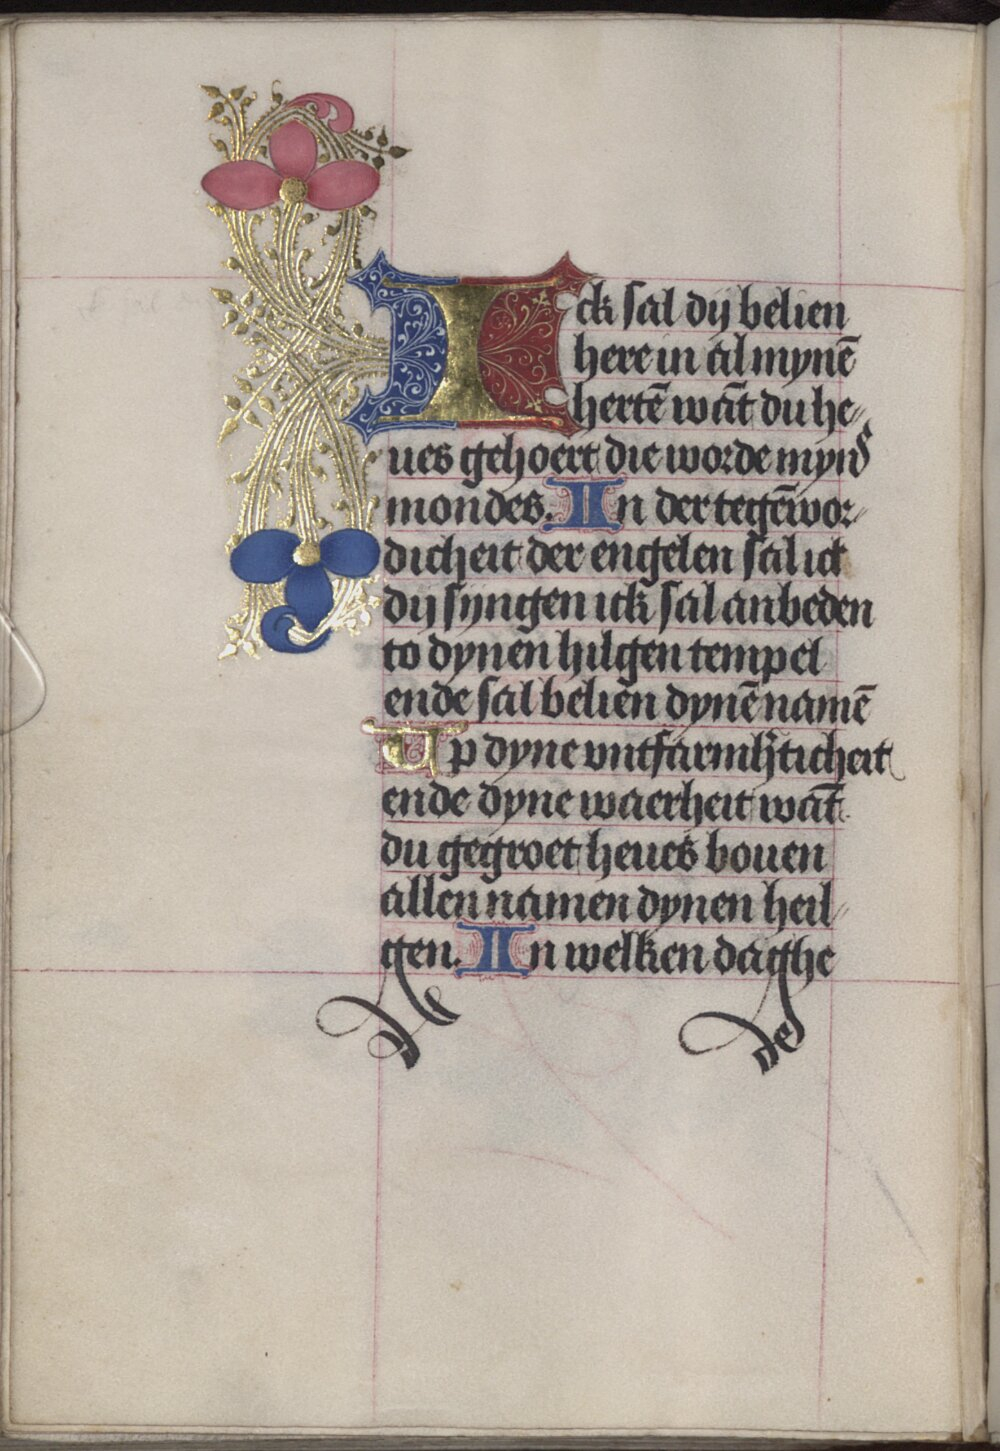 Ick sal dij belien
here in al mynē
hertē wāt du he„
ues gehoert die worde myns
mondes. In der tegēwor„
dicheit der engelen sal ick
dij syngen ick sal anbeden
to dynen hilgen tempel
ende sal belien dynē namē
Up dyne untfarmh̄ticheit
ende dyne waerheit wāt
du gegroet heues bouen
allen namen dynen heil„
gen. In welken daghe